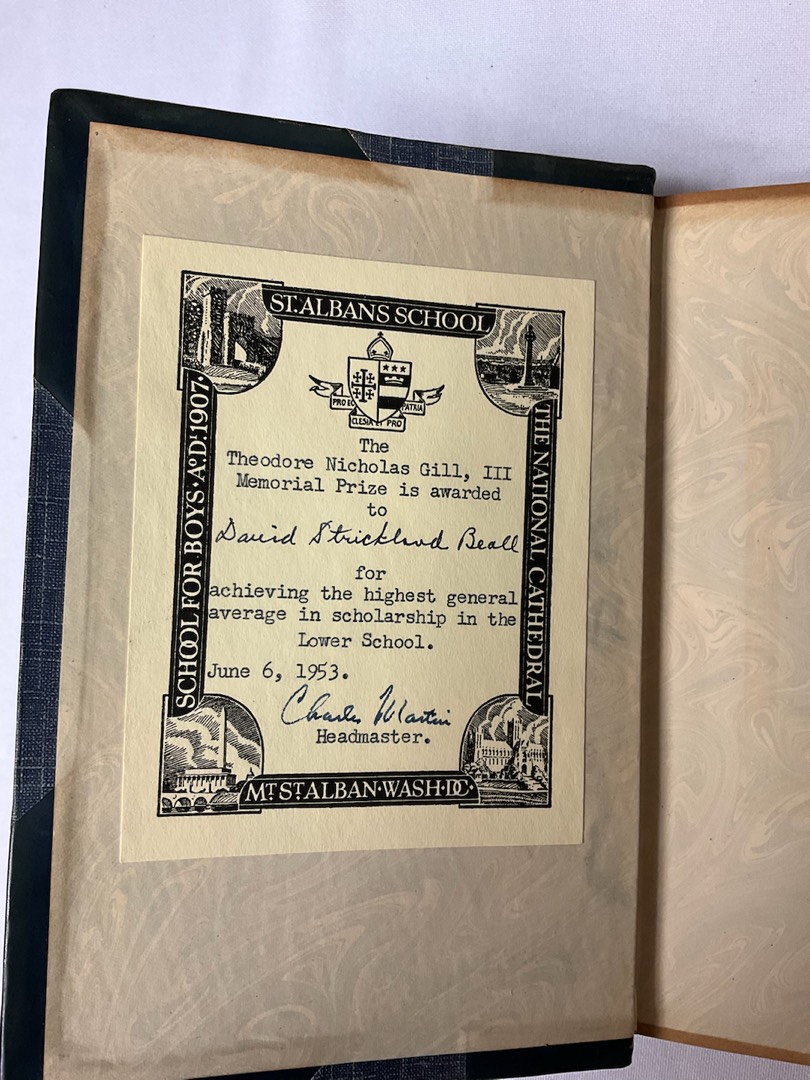 ST. ALBANS SCHOOL
PRO EC
CLESIA ET PRO
PATRIA
SCHOOL FOR BOYS · A.D. 1907 ·
THE NATIONAL CATHEDRAL
The
Theodore Nicholas Gill, III
Memorial Prize is awarded
to
David Strickland Beall
for
achieving the highest general
average in scholarship in the
Lower School.
June 6, 1953.
Charles Martin
Headmaster.
MT. ST. ALBAN · WASH · D.C.